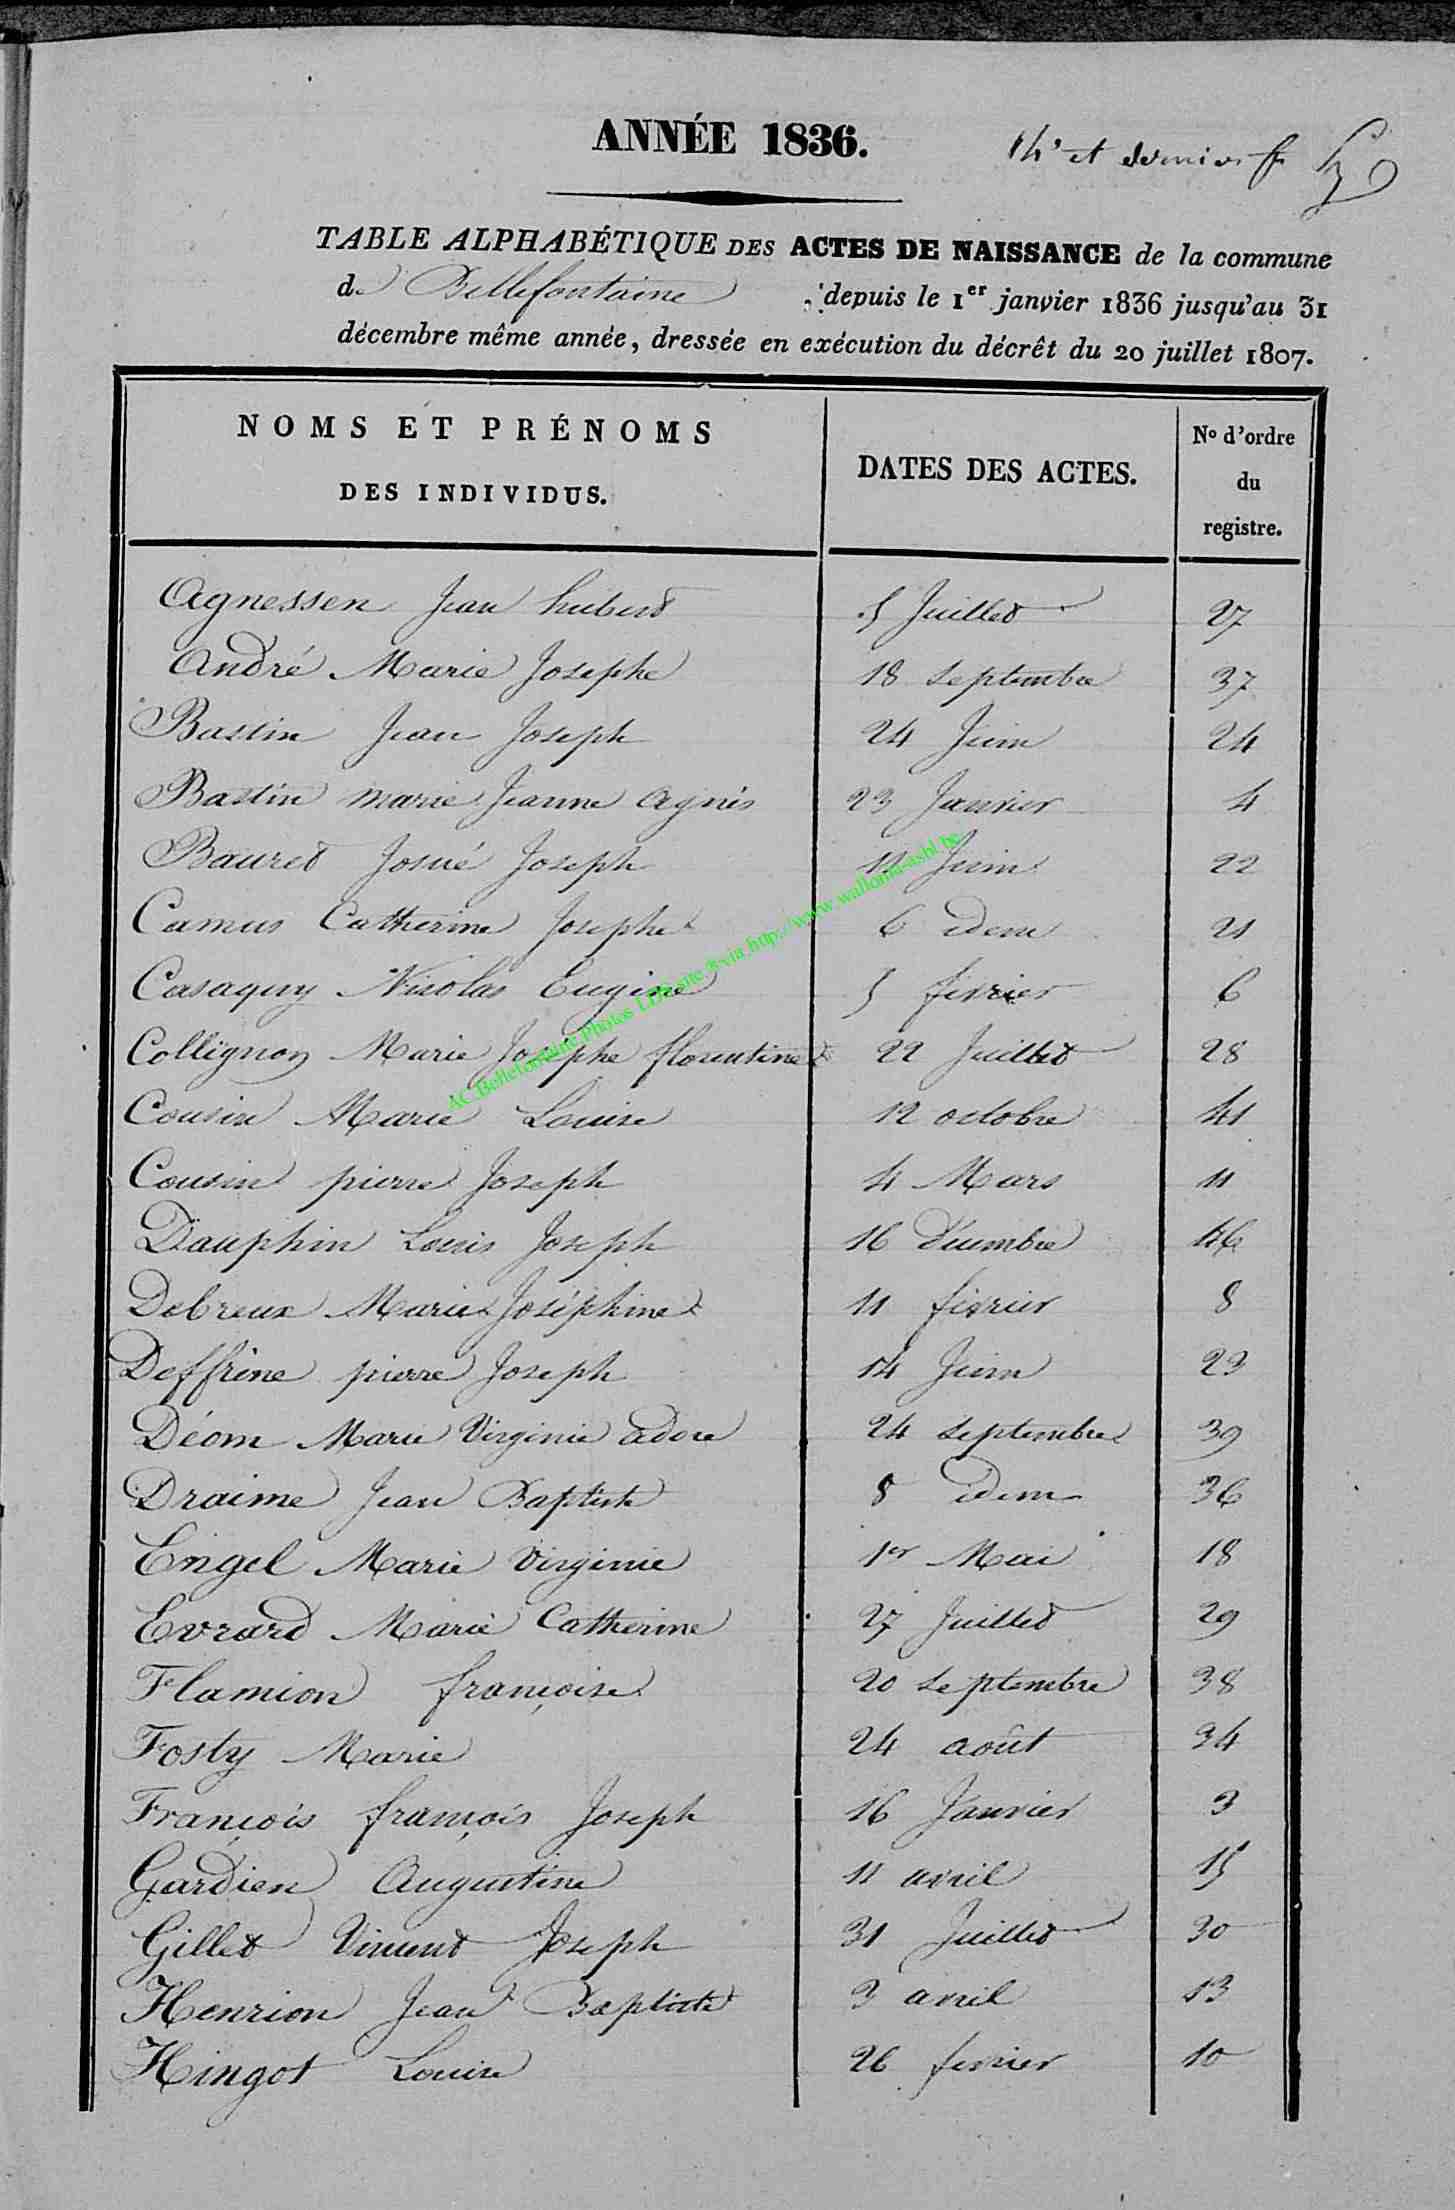 ANNÉE 1836.
14e et dernier f
TABLE ALPHABÉTIQUE DES ACTES DE NAISSANCE de la commune
de Bellefontaine depuis le 1er janvier 1836 jusqu'au 31
décembre même année, dressée en exécution du décrêt du 20 juillet 1807.
NOMS ET PRÉNOMS
DES INDIVIDUS.
DATES DES ACTES.
No d'ordre
du
registre.
Agnessen Jean hubert 5 Juillet 27
André Marie Josephe 18 septembre 37
Bastin Jean Joseph 24 Juin 24
Bastin marie Jeanne agnès 23 Janvier 4
Bauret Josué Joseph 12 Juin 22
Camus Catherine Josephe 6 idem 21
Casaquy Nicolas Eugène 5 février 6
Collignon Marie Josephe florentine 22 Juillet 28
Cousin Marie Louise 12 octobre 41
Cousin pierre Joseph 4 Mars 11
Dauphin Louis Joseph 16 Décembre 46
Debreux Marie Joséphine 11 février 8
Deffrêne pierre Joseph 14 Juin 23
Déom Marie Virginie adore 24 septembre 39
Draime Jean Baptiste 8 idem 36
Engel Marie Virginie 1er Mai 18
Evrard Marie Catherine 27 Juillet 29
Flamion françoise 20 septembre 38
Fosty Marie 24 août 34
François françois Joseph 16 Janvier 3
Gardien Augustine 11 avril 15
Gillet Vincent Joseph 31 Juillet 30
Henrion Jean Baptiste 3 avril 13
Hingot Louise 26 fevrier 10
AC Bellefontaine Photos LDS site & via http://www.wallonia-asbl.be